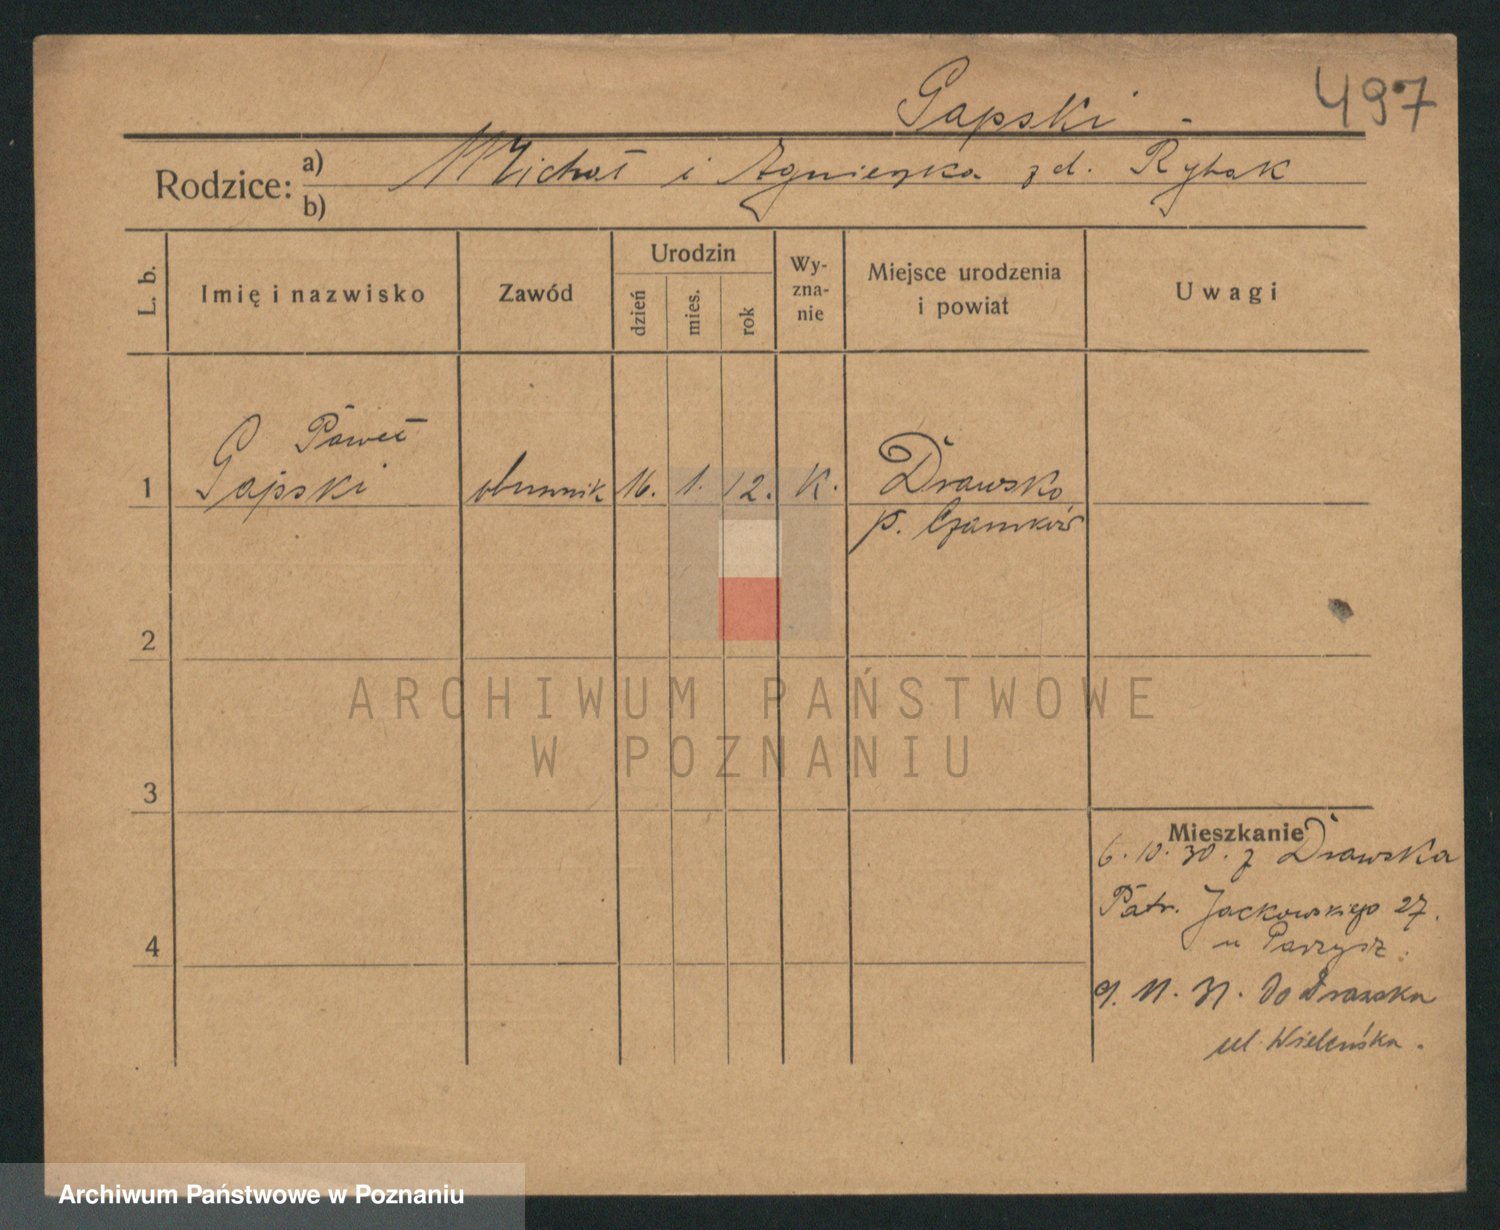 Gapski
497
Rodzice:
a) Michał i Agnieszka zd. Rybak
b)
L. b.
Imię i nazwisko
Zawód
Urodzin
dzień
mies.
rok
Wy-
zna-
nie
Miejsce urodzenia
i powiat
Uwagi
Paweł
1 Gapski 16. 1. 12. K. Drawsko
p. Czarnków
2
3
4
Mieszkanie
6. 10. 30. z Drawska
Patr. Jackowskiego 27.
u Parzysz.
9. 11. 31. do Drawska
ul. Wieleńska.
ARCHIWUM PAŃSTWOWE
W POZNANIU
Archiwum Państwowe w Poznaniu